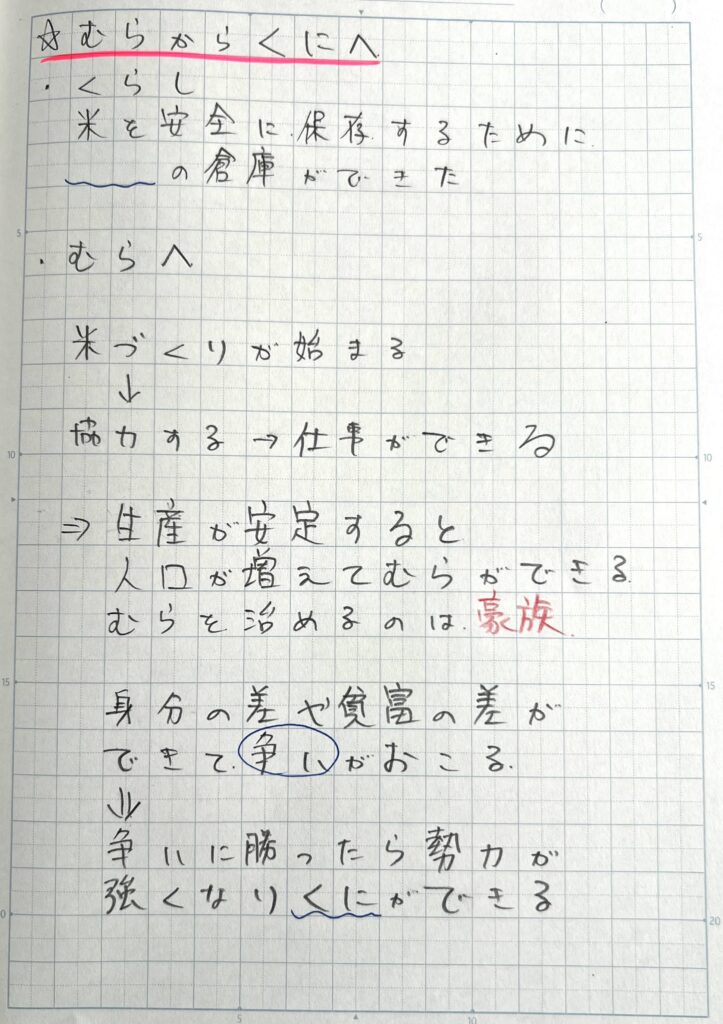 ☆むらからくにへ
・くらし
米を安全に保存するために
＿＿の倉庫ができた
・むらへ
米づくりが始まる
↓
協力する→仕事ができる
⇒生産が安定すると
人口が増えてむらができる
むらを治めるのは豪族
身分の差や貧富の差が
できて争いがおこる
⇓
争いに勝ったら勢力が
強くなりくにができる